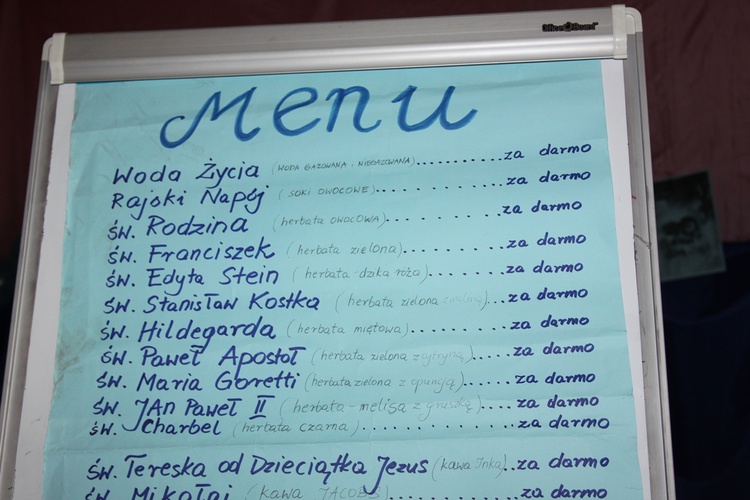 Office Board
Menu
Woda Życia (WODA GAZOWANA I NIEGAZOWANA)..........za darmo
Rajski Napój (SOKI OWOCOWE)..............za darmo
św. Rodzina (herbata OWOCOWA)............za darmo
św. Franciszek (herbata zielona)...........za darmo
św. Edyta Stein (herbata-dzika róża).........za darmo
św. Stanisław Kostka (herbata zielona)...za darmo
św. Hildegarda (herbata miętowa)..........za darmo
św. Paweł Apostoł (herbata zielona z cytryną).....za darmo
św. Maria Goretti (herbata zielona z opuncją).....za darmo
św. JAn Paweł II (herbata-melisa z gruszką)....za darmo
św. Charbel (herbata czarna)..............za darmo
św. Tereska od Dzieciątka Jezus (kawa Inka)..za darmo
św. Mikołaj (kawa JACOBS)..............za darmo